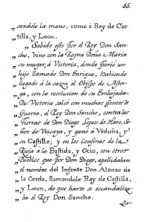 sandole la mano, como à Rey de Cas-
tilla, y Leon.
Sabido esto por el Rey Don San-
cho, vino con la Reyna Doña Maria
su muger, à Victoria, donde parió un
hijo llamado Don Enrique. Hallando
llegado à la sazon el Obispo de Astor-
ga, con la resolucion de su Embajada.
De Victoria salió con muchas Gentes de
Guerra, el Rey Don Sancho, contra las
tierras de Don Diego Lopez de Haro, Se-
ñor de Vizcaya, y ganó à
su Castillo; y en los confines de la
Rioja à la Bastida, y Ocio, con otros
Pueblos que por Don Diego, apellidaban
el nombre del Infante Don Alonso de
la Cerda, llamandole Rey de Castilla,
y Leon, de que harto se escandaliza-
ba el Rey Don Sancho.